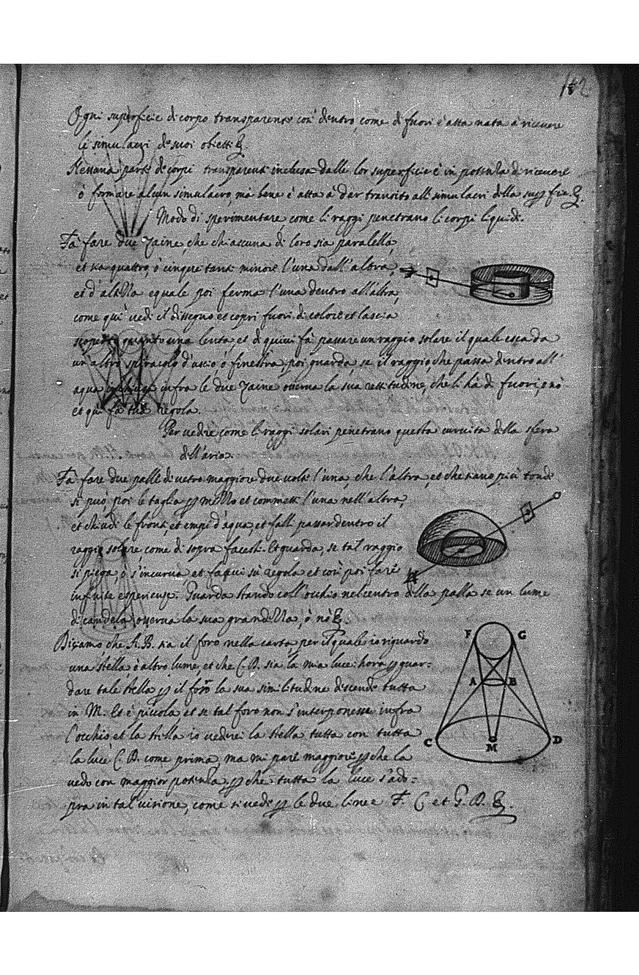 182
Ogni superficie di corpo transparente così dentro, come di fuori è atta nata a ricevere
le simulacri de suoi obietti.
Nessuna parte de corpi transparenti inclusa dalle lor superficie è in potentia di ricevere
ò formare alcun simulacro, ma bene è atta à dar transito alli simulacri della superficie.
Modo di sperimentare come li raggi penetrano li corpi liquidi.
Fa fare due Zaine, che chiascuna di loro sia paralella,
et sia quattro ò cinque tanti minore l'una dall'altra,
et d'altezza equale poi ferma l'una dentro all'altra,
come qui vedi il disegno et copri fuori di colore et lascia
scoperto quanto una lenta, et di quivi fà passare un raggio solare il quale esca da
un altro spiracolo d'uscio ò finestra, poi guarda se il raggio, che passa dentro all'
aqua infra le due Zaine osserva la sua rettitudine, che li hà di fuori, ò nò
et qui fà tua Regola.
Per vedere come li raggi solari penetrano questa curvità della sfera
dell'aria.
Fa fare due palle di vetro maggiore due volte l'una, che l'altra, et che siano più tonde
si può poi le taglia per mezzo et commetti l'una nell'altra,
et chiudi le fronti, et empi d'aqua, et falli passar dentro il
raggio solare, come di sopra facesti. Et guarda, se tal raggio
si piega, ò s'incurva et fa qui sù regola et così poi farè
infinite esperienze. Guarda stando coll'occhio nel centro della palla se un lume
di candela osserva la sua grandezza, ò nò.
Diciamo che A.B. sia il foro nella carta per il quale io riguardo
una stella ò altro lume et che C.D. sia la mia luce: hora per guar-
dare tale stella per il foro la sua similitudine discende tutta
in M. Et è picola, et se tal foro non s'interponesse infra
l'occhio et la stella io vederei la stella tutta con tutta
la luce C.D. come prima, ma mi pare maggiore perche la
vedo con maggior potentia, perche tutta la luce s'ado-
pra in tal visione, come si vede per le due linee F. C et G. D.
F G
A B
C M D